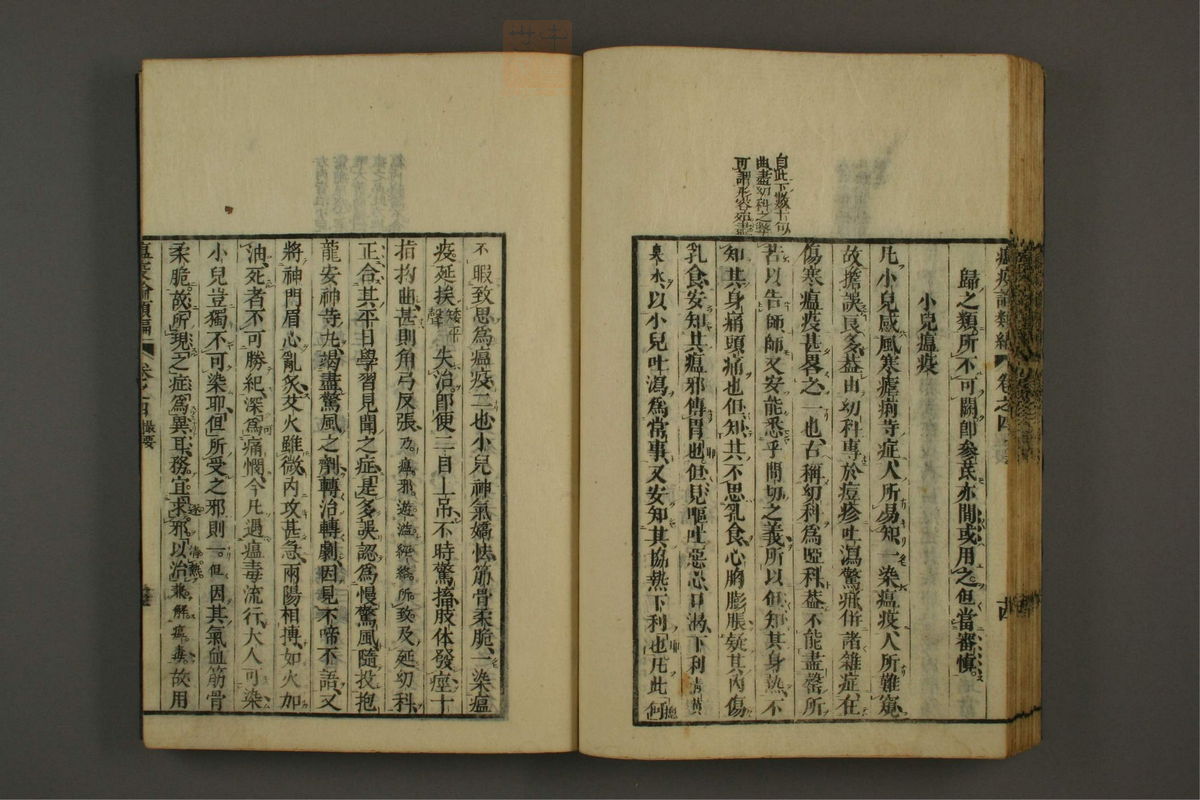 自此下數十句
曲盡幼科之弊
可謂形容殆盡
瘟疫論類編 卷之四
歸之類所不可闕卽參茋亦間或用之但當審愼
小兒瘟疫
凡小兒感風寒瘧痢等症人所易知一染瘟疫人所難窺
故擔誤良多葢由幼科專於痘疹吐瀉驚疳併諸雜症在
傷寒瘟疫甚畧之一也古稱幼科爲啞科葢不能盡罄所
苦以告師師又安能悉乎問切之義所以但知其身熱不
知其身痛頭痛也但知其不思乳食心胸膨脹疑其內傷
乳食安知其瘟邪傳胃也但見嘔吐惡心口渴下利淸黃
臭水以小兒吐瀉爲常事又安知其協熱下利也凡此何總
不暇致思爲瘟疫二也小兒神氣嬌怯筋骨柔脆一染瘟
疫延挨矮平聲失治卽便二目上吊不時驚搐肢体發痙十
指拘曲甚則角弓反張乃瘟邪遊溢經絡所致及延幼科
正合其平日學習見聞之症是多誤認爲慢驚風隨投抱
龍安神等丸竭盡驚風之劑轉治轉劇因見不啼不語又
將神門眉心亂炙艾火雖微內攻甚急兩陽相搏如火加
油死者不可勝紀深爲痛憫今凡遇瘟毒流行大人可染
小兒豈獨不可染耶但所受之邪則一但因其氣血筋骨
柔脆故所現之症爲異耳務宜求邪以治兼解瘟毒故用
瘟疫論類編 卷之四 撮要